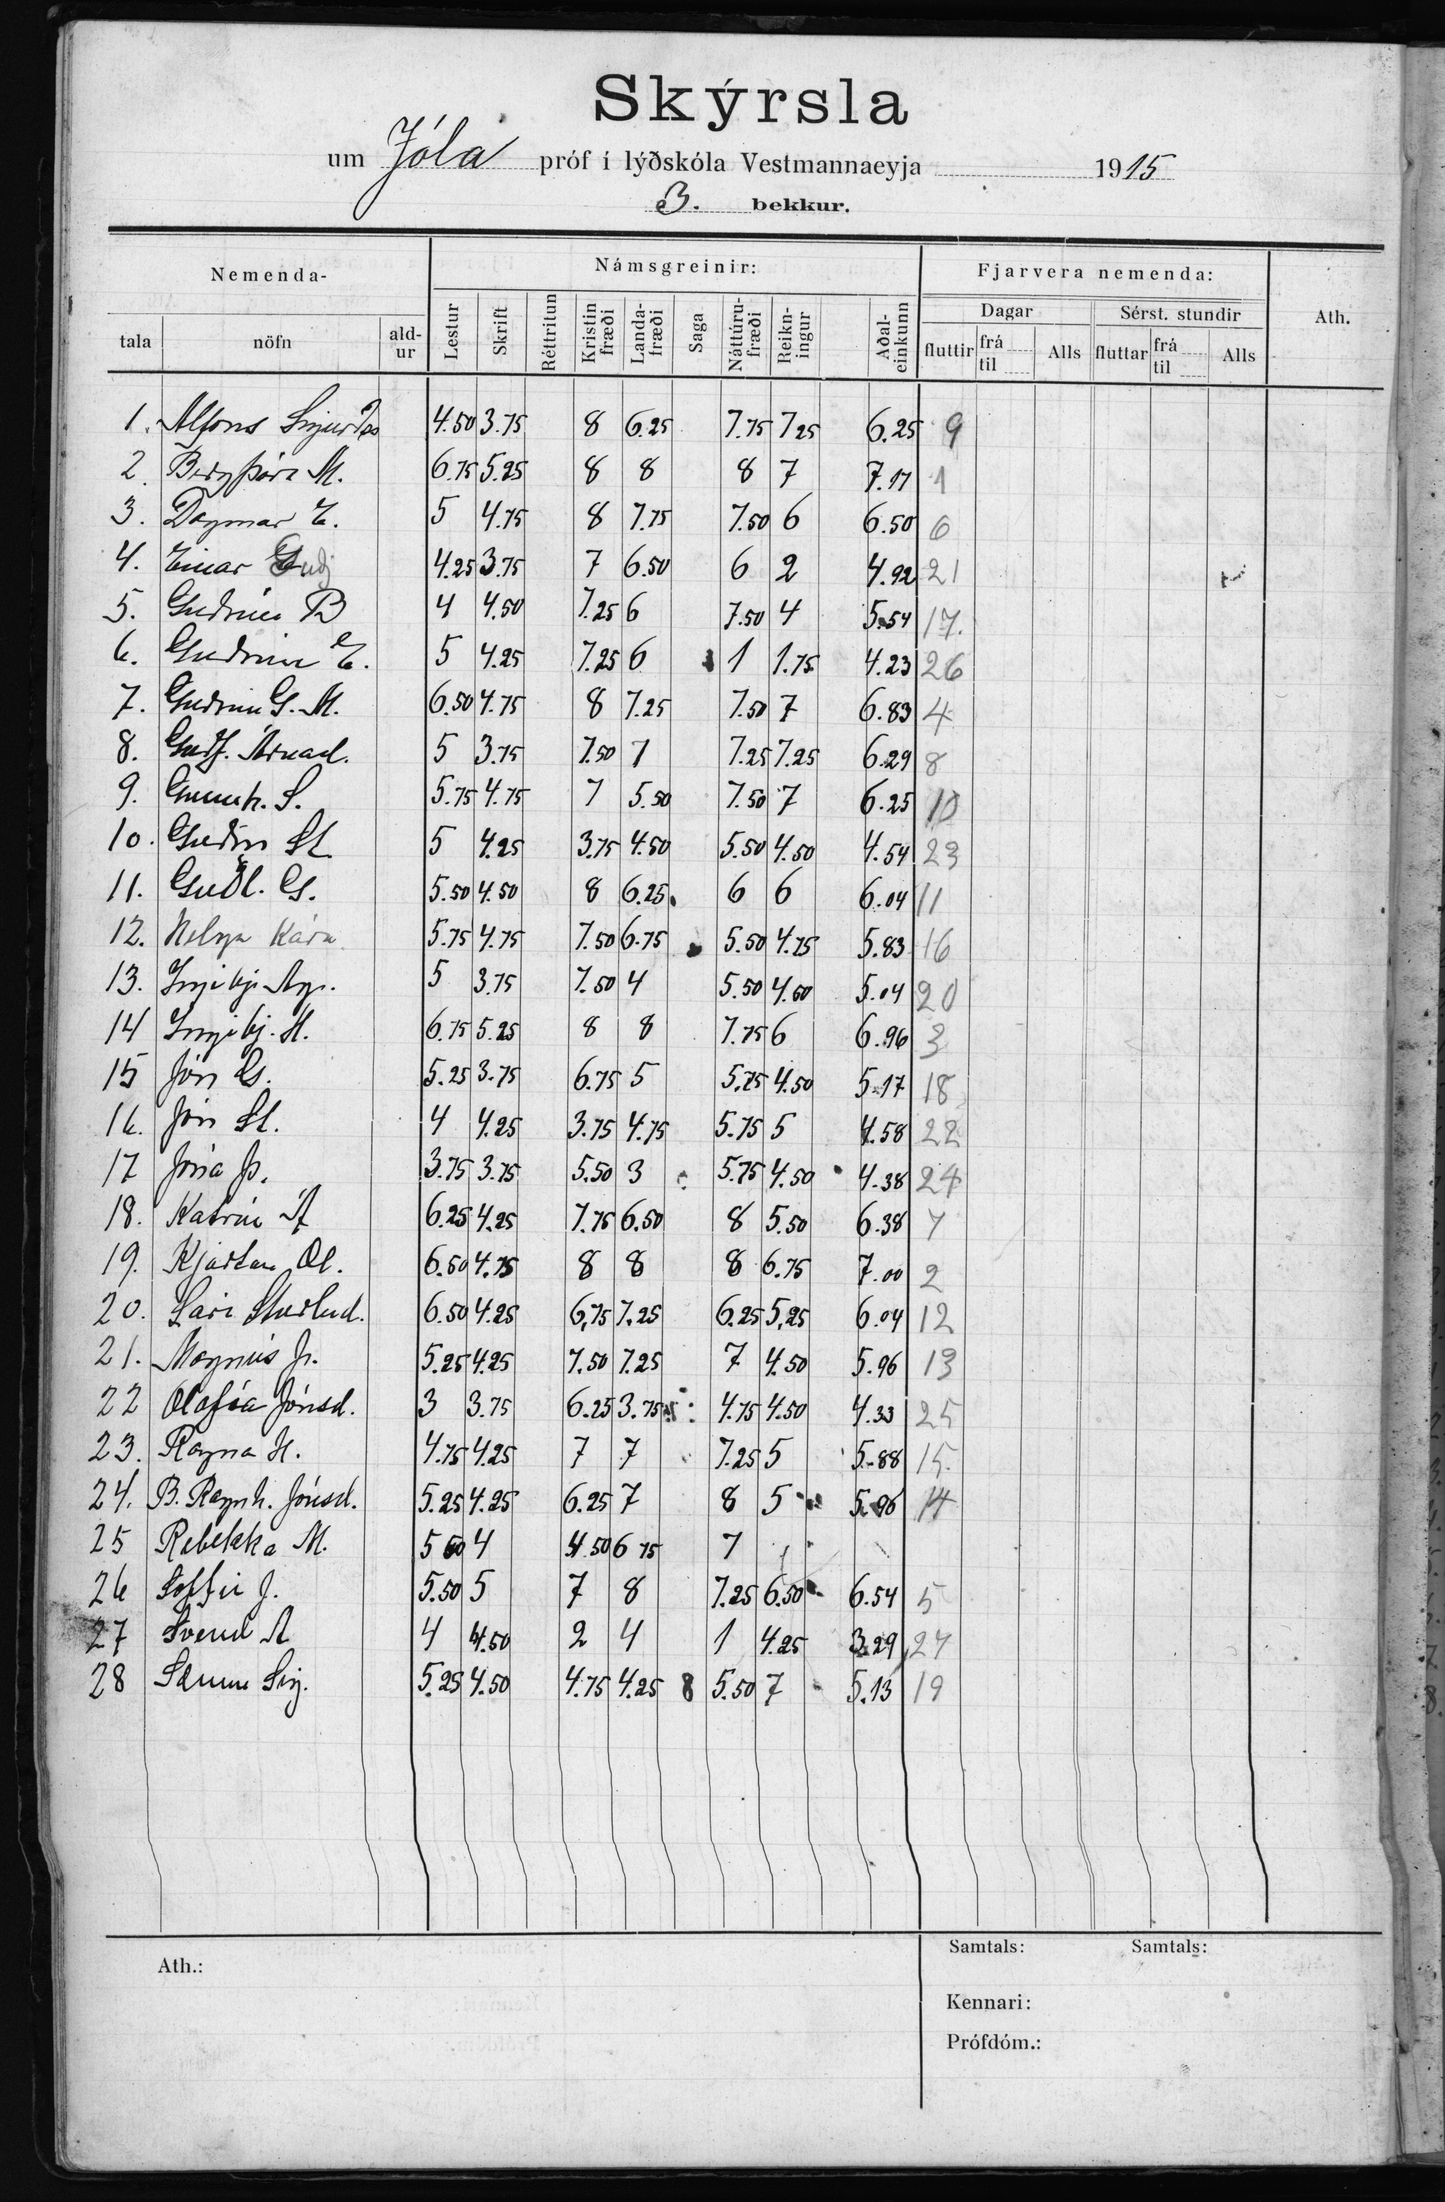 Skýrsla
um Jóla próf í lýðskóla Vestmannaeyja 1915
3. bekkur.
Nemenda- Námsgreinir: Fjarvera nemenda:
tala nöfn ald-ur Lestur Skrift Réttritun Kristin fræði Landa-fræði Saga Náttúru-fræði Reikn-ingur Aðal-einkunn Dagar Sérst. stundir Ath.
fluttir frá til Alls fluttar frá til Alls
1. Alfons 4.50 3.75 8 6.25 7.75 7.25 6.25 9
2. Bergþóra M. 6.75 5.25 8 8 8 7 7.17 1
3. Dagmar E. 5 4.75 8 7.75 7.50 6 6.50 6
4. Einar Guðj 4.25 3.75 7 6.50 6 2 4.92 21
5. Guðrún B 4 4.50 7.25 6 7.50 4 5.54 17.
6. Guðrún E. 5 4.25 7.25 6 1 1.75 4.23 26
7. Guðrún G. M. 6.50 4.75 8 7.25 7.50 7 6.83 4
8. Guðf. Árnad. 5 3.75 7.50 7 7.25 7.25 6.29 8
9. Gunnh. S. 5.75 4.75 7 5.50 7.50 7 6.25 10
10. St. 5 4.25 3.75 4.50 5.50 4.50 4.54 23
11. Guðl. G. 5.50 4.50 8 6.25 6 6 6.04 11
12. Helga Kára 5.75 4.75 7.50 6.75 5.50 4.75 5.83 16
13. Ingibj. 5 3.75 7.50 4 5.50 4.50 5.04 20
14 Ingibj. H. 6.75 5.25 8 8 7.75 6 6.96 3
15 Jón G. 5.25 3.75 6.75 5 5.75 4.50 5.17 18
16. Jón St. 4 4.25 3.75 4.75 5.75 5 4.58 22
17 Jóna Þ. 3.75 3.75 5.50 3 5.75 4.50 4.38 24
18. Katrín Á 6.25 4.25 7.75 6.50 8 5.50 6.38 7
19. Kjartan Ól. 6.50 4.75 8 8 8 6.75 7.00 2
20. Sturlud. 6.50 4.25 6.75 7.25 6.25 5.25 6.04 12
21. Magnús 5.25 4.25 7.50 7.25 7 4.50 5.96 13
22 Ólafía Jónsd. 3 3.75 6.25 3.75 4.75 4.50 4.33 25
23. Ragna H. 4.75 4.25 7 7 7.25 5 5.88 15.
24. B. Ragnh. Jónsd. 5.25 4.25 6.25 7 8 5 5.96 14
25 Rebekka M. 5 50 4 4 50 6 75 7
26 Soffía J. 5.50 5 7 8 7.25 6.50 6.54 5
27 Svend A 4 4.50 2 4 1 4.25 3.29 27
28 Sig. 5.25 4.50 4.75 4.25 8 5.50 7 5.13 19
Samtals: Samtals:
Ath.:
Kennari:
Prófdóm.: